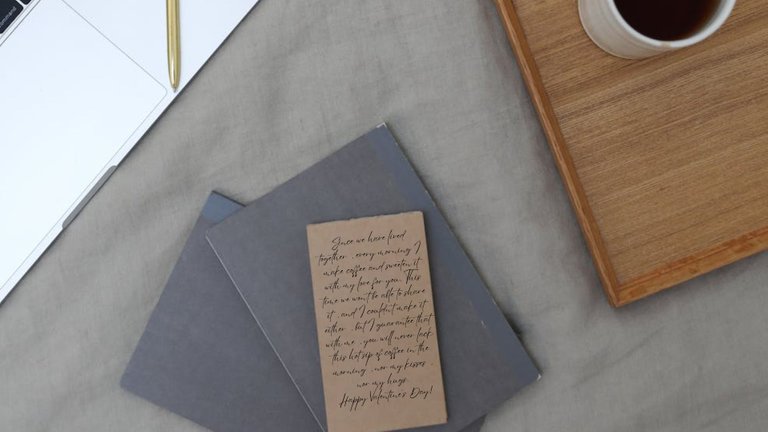 Since we have lived
together , every morning I
make coffee and sweeten it
with my love for you. This
time we won't be able to share
it , and I couldn't make it
either , but I guarantee that
with me , you will never lack
this hot sip of coffee in the
morning , nor my kisses
nor my hugs.
Happy Valentine's Day!